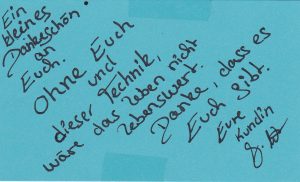 Ein
kleines
Dankeschön
an
Euch.
Ohne Euch
und
dieser Technik,
wäre das Leben nicht
lebenswert.
Danke, dass es
Euch gibt.
Eure
Kundin